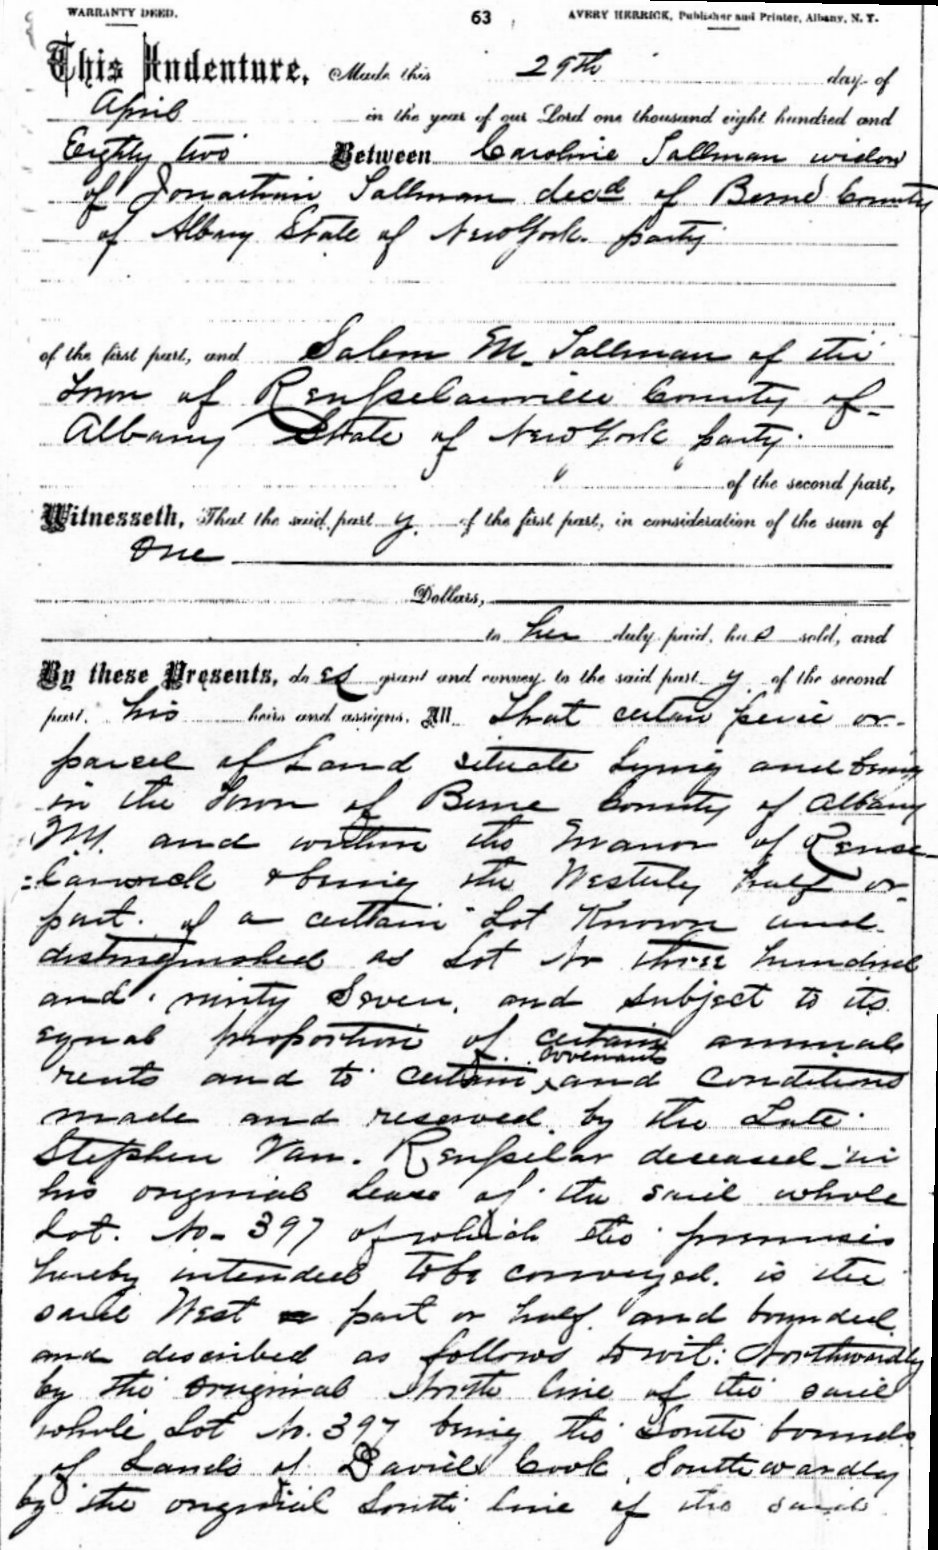 WARRANTY DEED.
63
AVERY HERRICK, Publisher and Printer, Albany, N. Y.
This Indenture, Made this 29th day of
April in the year of our Lord one thousand eight hundred and
Eighty two Between Caroline Sallman widow
of Sallman decd of Berne County
of Albany State of New York. party
of the first part, and Salem M. Sallman of the
Town of Renßelaerville County of
Albany State of New York party.
of the second part,
Witnesseth, That the said part y. of the first part, in consideration of the sum of
One
Dollars,
to her duly paid, has sold, and
By these Presents, do es grant and convey to the said part y of the second
part, his heirs and assigns, All That certain peice or
parcel of Land situate Lying and being
in the Town of Berne County of Albany
NY. and within the Manor of Rense
=larwick & being the Westerly half or
part. of a certain Lot Known and
distinguished as Lot No three hundred
and ninty Seven, and subject to its
equal proportion of certain annual
rents and to certain covenants and conditions
made and reserved by the Late
Stephen Van. Renßelar deceased in
his original Lease of the said whole
Lot. No. 397 of which the premises
hereby intended to be conveyed. is the
said West part or half. and bounded
and described as follows to wit: Northwardly
by the original North line of the said
whole Lot No. 397 being the South bounds
of Lands of David Cook, Southwardly
by the original South line of the said